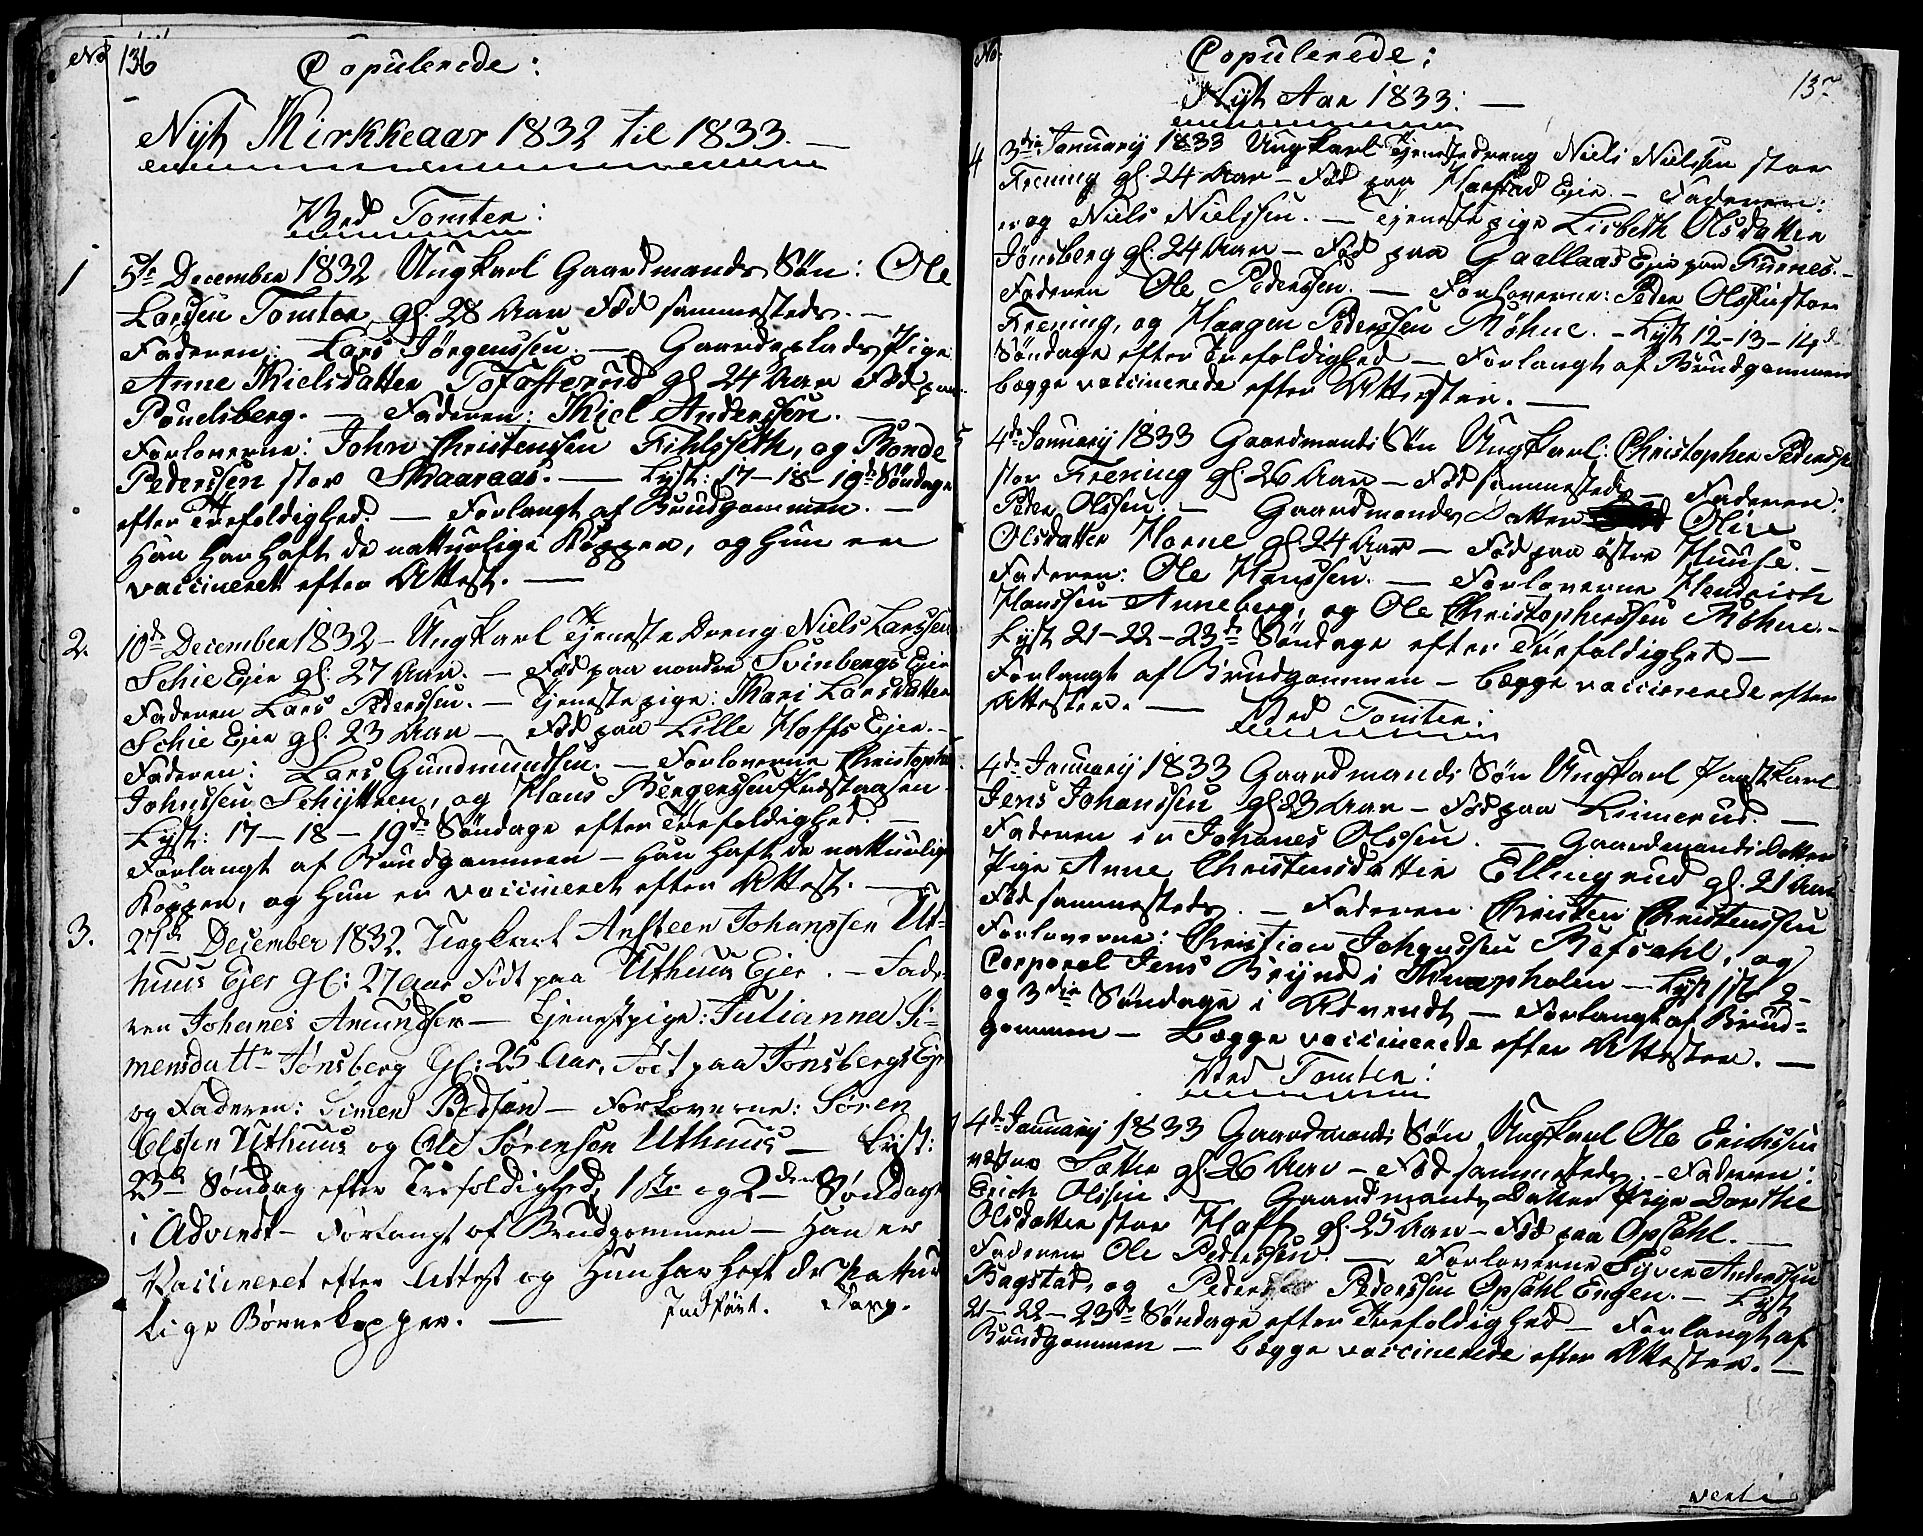 No 136 Copulerede:
Nyt Kirkeaar 1832 til 1833. —
Ved Tomter:
1 5te December 1832 Ungkarl Gaardmands Søn: Ole
Larsen Tomter gl. 28 Aar Fød sammesteds. —
Faderen: Lars Jørgenssen. — Gaardeplads Pige
Anne Kielsdatter Tofasterud gl 24 Aar Fød paa
Pounelsberg. — Faderen: Kiel Anderssen. —
Forloverne: John Christenssen Fihlseth, og Bonde
Pederssen stor Skaaraas. — Lyst: 17-18-19de Søndage
efter Trefoldighed. — Forlangt af Brudgommen. —
Han har haft de nattuelige Kopper, og hun er
vaccineret efter Attest. —
2. 10de December 1832 - Ungkarl Tjeneste Dreng Niels Larssen
Schie Ejer gl. 27 Aar. — Fød paa nordre Svinbergs Ejer
Faderen Lars Pederssen. — Tjenestepige: Kari Larsdatter
Schie Ejer gl. 23 Aar — Fød paa Lille Hoffs Ejer. —
Faderen: Lars Gundmundsen. — Forloverne Christopher
Johnssen Schytten, og Klaus Bergerssen
Lyst: 17-18-19de Søndage efter Trefoldighed —
Forlangt af Brudgommen — Han haft de nattuelige
Kopper, og hun er vaccineret efter Attest. —
3. 27de December 1832. Ungkarl Ansteen Johanssen Ut-
huus Ejer gl: 27 Aar Født paa Uthuus Ejer. — Fade-
ren Johanes Amundsen — Tjenestpige: Julianna Si-
mensdattr Jønsberg gl: 25 Aar, Født paa Jønsbergs Eje
og Faderen: Simen Pedsen — Forloverne: Søren
Olssen Uthuus og Ole Sørensen Uthuus — Lyst:
23de Søndag efter Trefoldighed, 1ste og 2den Søndage
i Advendt — Forlangt af Brudgommen — Han er
Vaccineret efter Attest og Hun har haft de Nattur
lige Børnekopper. — Indført.
No. Copulerede: 137
Nyt Aar 1833: —
4 3die January 1833 Ungkarl Tjenestedreng Niels Nielssen stor
Frening gl. 24 Aar — Fød paa Harstad Ejer. — Faderen:
og Niels Nielssen. — Tjenestepige Lisbeth Olsdatter
Jønsberg gl. 24 Aar — Fød paa Gaallaas Ejer paa Furnes. —
Faderen Ole Pederssen. — Forloverne: Peder Olssen stor
Frening, og Haagen Pederssen Møhne. — Lyst 12-13-14de
Søndage efter Trefoldighed — Forlangt af Brudgommen
begge vaccinerede efter Attester. —
5 4de January 1833 Gaardmands Søn Ungkarl: Christopher Pederss
stor Frening gl 26 Aar — Fød sammesteds — Faderen:
Peder Olssen. — Gaardmands Datter Oline
Olsdatter Horne gl 24 Aar — Fød paa østre Huuse. —
Faderen: Ole Hanssen. — Forloverne Hendrich
Hanssen Anneberg, og Ole Christopherssen Møhne. —
Lyst 21-22-23de Søndage efter Trefoldighed —
Forlangt af Brudgommen — begge vaccinerede efter
Attester. — Ved Tomter:
4de January 1833 Gaardmands Søn Ungkarl
Jens Johanssen gl 23 Aar — Fød paa Linnerud —
Faderen er Johanes Olssen. — Gaardmands Datter
Pige Anne Christensdatter Ellingrud gl. 21 Aar
Fød sammesteds. — Faderen Christen Christenssen
Forloverne: Christian Johanssen Refsahl, og
Corporal Jens Brynd i Knapholen — Lyst 1st 2-
og 3die Søndage i Advendt — Forlangt af Brud=
gommen — Begge vaccinerede efter Attester. —
Ved Tomter:
4de January 1833 Gaardmands Søn Ungkarl Ole Erichssen
Sætter gl 26 Aar — Fød sammesteds. — Faderen:
Erich Olssen — Gaardmands Datter Pige Dorthe
Olsdatter stor Hoff gl. 25 Aar — Fød paa Opsahl. —
Faderen Ole Pederssen. — Forloverne Syver Anderssen
Bagstad, og Peder Pederssen Opsahl Engen. — Lyst
21-22-23de Søndage efter Trefoldighed — Forlangt af
Brudgommen — begge vaccinerede efter Attester. —
verte